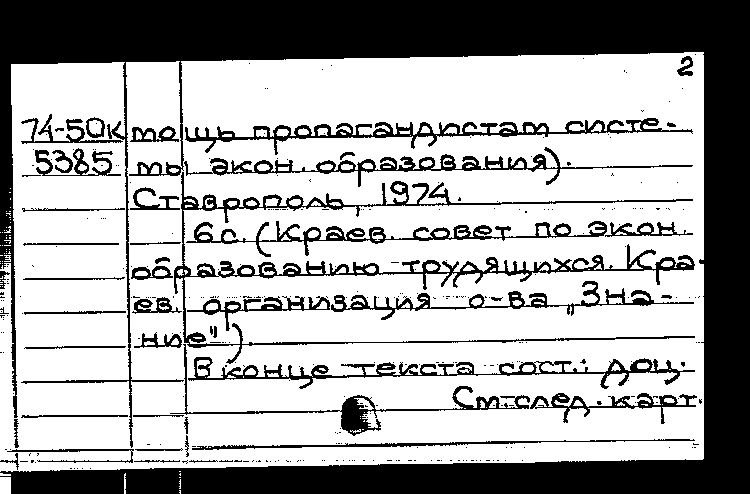 2
74-50к мощь пропагандистам систе-
5385 мы экон. образования).
Ставрополь, 1974.
6с. (Краев. совет по экон.
образованию трудящихся. Кра-
ев. организация о-ва „Зна-
ние").
В конце текста сост.: доц.
См. след. карт.